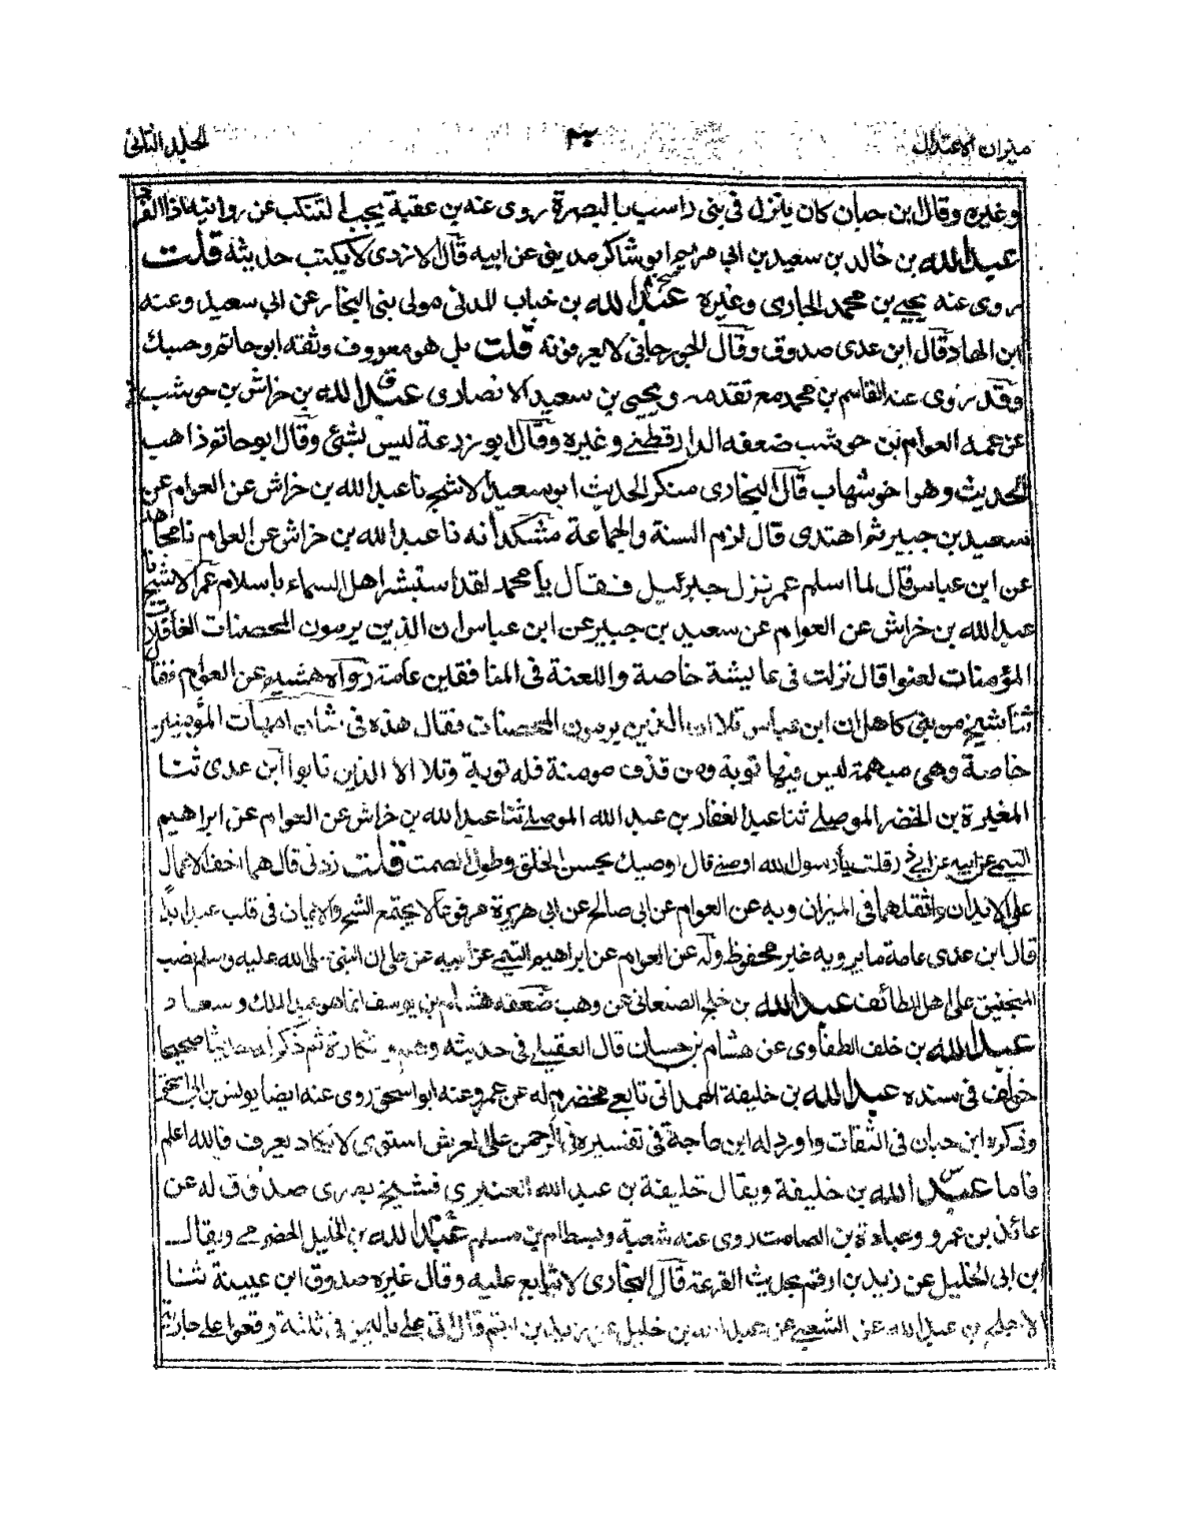 ميزان الاعتدال ٣٠ الجلد الثانى
وغيره وقال بن حبان كان ينزل فى بنى راسب بالبصرة روى عنه بن عقبة يجب التنكب عن رواتيه اذا انفرد
عبد الله بن خالد بن سعيد بن ابى مريم ابو شاكر مدينى عن ابيه قال الازدى لا يكتب حديثه قلت
روى عنه يحيى بن محمد الجارى وغيره عبد الله بن خباب المدنى مولى بنى النجار عن ابى سعيد وعنه
ابن الهاد قال ابن عدى صدوق وقال الجوزجانى لا يعرفونه قلت بل هو معروف وثقه ابو حاتم وحسبك
وقد روى عنه القاسم بن محمد مع تقدمه ويحيى بن سعيد الانصارى عبد الله بن خراش بن حوشب
عن عمه العوام بن حوشب ضعفه الدارقطنى وغيره وقال ابو زرعة ليس بشئ وقال ابو حاتم ذاهب
الحديث وهو اخو شهاب قال البخارى منكر الحديث ابو سعيد الاشج نا عبد الله بن خراش عن العوام عن
سعيد بن جبير ثم اهتدى قال لزم السنة والجماعة مشكدانه نا عبد الله بن خراش عن العوام نا مجاهد
عن ابن عباس قال لما اسلم عمر نزل جبرئيل فقال يا محمد لقد استبشر اهل السماء باسلام عمر الاشج نا
عبد الله بن خراش عن العوام عن سعيد بن جبير عن ابن عباس ان الذين يرمون المحصنات الغافلات
المؤمنات لعنوا قال نزلت فى عايشة خاصة واللعنة فى المنافقين عامة رواه هشيم عن العوام فقال
ثنا شيخ من بنى كاهل ان ابن عباس تلا ان الذين يرمون المحصنات فقال هذه فى شان امهات المؤمنين
خاصة وهى مبهمة ليس فيها توبة ومن قذف مومنة فله توبة وتلا الا الذين تابوا ابن عدى ثنا
المغيرة بن الخضر الموصلى ثنا عبد الغفار بن عبد الله الموصلى ثنا عبد الله بن خراش عن العوام عن ابراهيم
التيمى عن ابيه عن ابى ذر قلت يا رسول الله اوصنى قال اوصيك بحسن الخلق وطول الصمت قلت زدنى قال هما اخف الاعمال
على الابدان واثقلهما فى الميزان وبه عن العوام عن ابى صالح عن ابى هريرة مرفوعا لا يجتمع الشح والايمان فى قلب عبد ابدا
قال ابن عدى عامة ما يرويه غير محفوظ وله عن العوام عن ابراهيم التيمى عن ابيه عن على ان النبى صلى الله عليه وسلم نصب
المنجنيق على اهل الطائف عبد الله بن الصنعانى عن وهب ضعفه هشام بن يوسف انما هو عبد الملك وسعاد
عبد الله بن خلف الطفاوى عن هشام بن حسان قال العقيلى فى حديثه وهم ونكارة ثم ذكر له حديثا صحيحا
خولف فى سنده عبد الله بن خليفة الهمدانى تابعى مخضرم له عن عمر وعنه ابو اسحق روى عنه ايضا يونس بن ابى اسحق
وذكره ابن حبان فى الثقات واورد له ابن ماجة فى تفسيره فى الرحمن على العرش استوى لا يكاد يعرف فالله اعلم
فاما عبد الله بن خليفة ويقال خليفة بن عبد الله العنبرى فشيخ بصرى صدوق له عن
عائذ بن عمرو وعبادة بن الصامت روى عنه شعبة وبسطام بن مسلم عبد الله بن الخليل الحضرمى ويقال
بن ابى الخليل عن زيد بن ارقم بحديث القرعة قال البخارى لا يتابع عليه وقال غيره صدوق ابن عيينة ثنا
الاجلح بن عبد الله عن الشعبى عن عبد الله بن خليل عن زيد بن ارقم قال اتى على باليمن فى ثلثة وقعوا على جارية